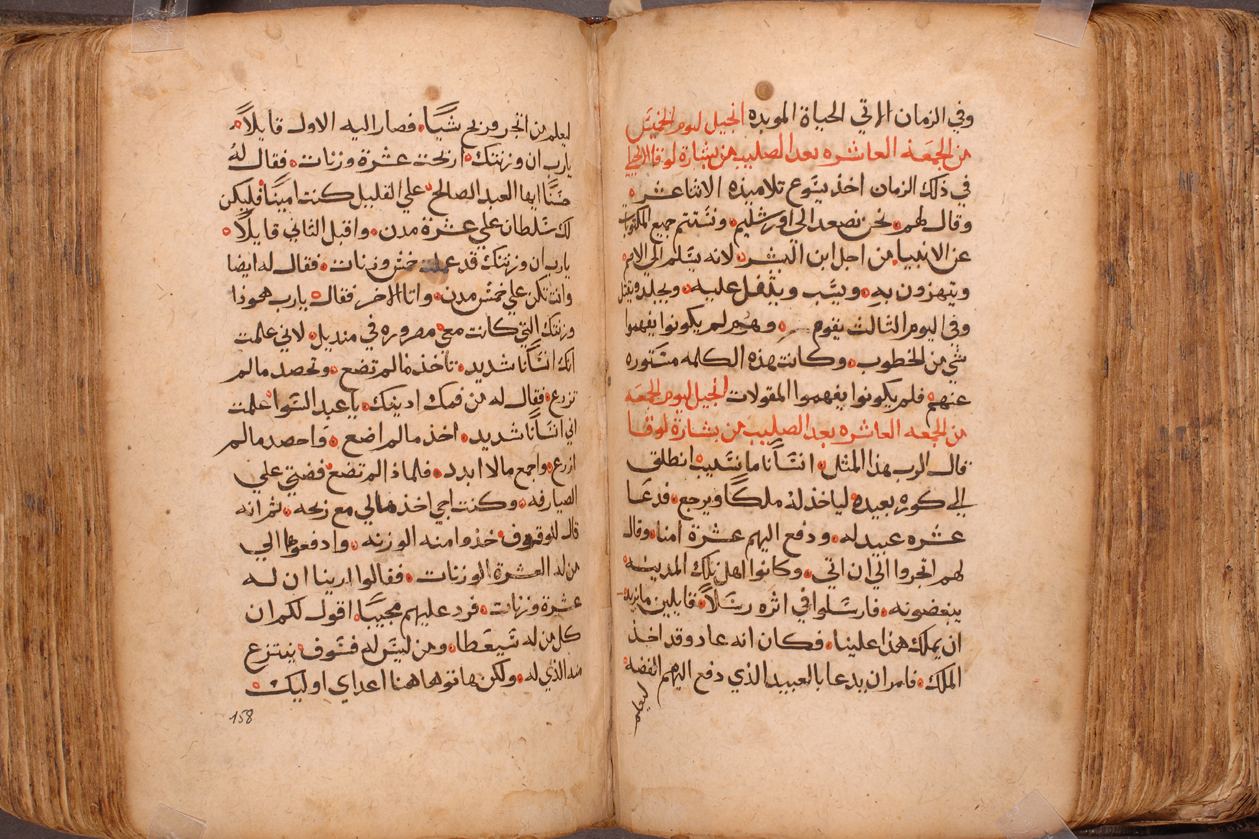 وفي الزمان الاتي الحياة الموبده انجيل ليوم الخميس
من الجمعه العاشره بعد الصليب من بشارة لوقا الانجيلي
في ذلك الزمان اخذ يشوع تلاميذه الاثناعشر
وقال لهم نحن نصعد الى اورشليم وتستتم جميع المكتوبات
عن الانبيا من اجل ابن البشر لانه يسلم الى الامم
ويتهزون به ويسب ويتفل عليه ويجلد ويقتل
وفي اليوم الثالث يقوم وهم لم يكونوا يفهموا
شي من الخطوب وكانت هذه الكلمه مستوره
عنهم فلم يكونوا يفهموا المقولات انجيل ليوم الجمعه
من الجمعه العاشره بعد الصليب من بشارة لوقا
قال الرب هذا المثل انسانا ما نسيب انطلق
الى كوره بعيده لياخذ له ملكا ويرجع فدعا
عشره عبيد له ودفع اليهم عشرة امنا وقال
لهم اتجروا الى ان اتي وكانوا اهل تلك المدينه
يبغضونه فارسلوا في اثره رسلا قايلين ما نريد
ان يملك هذا علينا فكان انه عاد وقد اخذ
الملك فامر ان يدعا بالعبيد الذي دفع اليهم الفضه
ليعلم
ليعلم من اتجر وربح شيا فصار اليه الاول قايلا
يارب ان وزنتك اربحت عشرة وزنات فقال له
حسنا ايها العبد الصالح علي القليل كنت امينا فليكن
لك سلطان علي عشرة مدن واقبل الثاني قايلا
يارب ان وزنتك قد عملت خمس وزنات فقال له ايضا
وانت تكن علي خمس مدن واتا الاخر فقال يارب هوذا
وزنتك التي كانت معي مصروره في منديل لاني علمت
انك انسانا شديد تاخذ مالم تضع وتحصد مالم
تزرع فقال له من فمك ادينك يا عبد السوا علمت
اني انسانا شديد اخذ مالم اضع واحصد مالم
ازرع واجمع مالا ابدد فلماذا لم تضع فضتي علي
الصيارفه وكنت اجي اخذ مالي مع ربحه ثم انه
قال للوقوف خذوا منه الوزنه وادفعوها الي
من له العشرة الوزنات فقالوا اربنا ان له
عشرة وزنات فرد عليهم مجيبا اقول لكم ان
كل من له سيعطا ومن ليس له فسوف ينتزع
منه الذي له ولكن هاتوا هاهنا اعداي اوليك
158